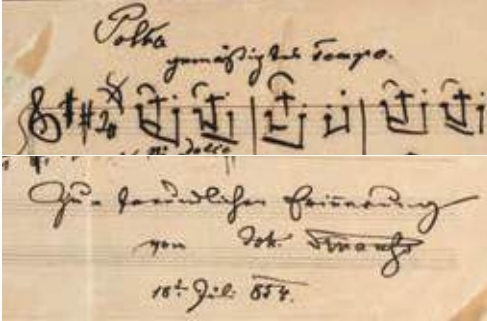 Polka
gemäßigtes Tempo.
Zur freundlichen Erinnerung
von Joh. Strauß
18t Juli 854.